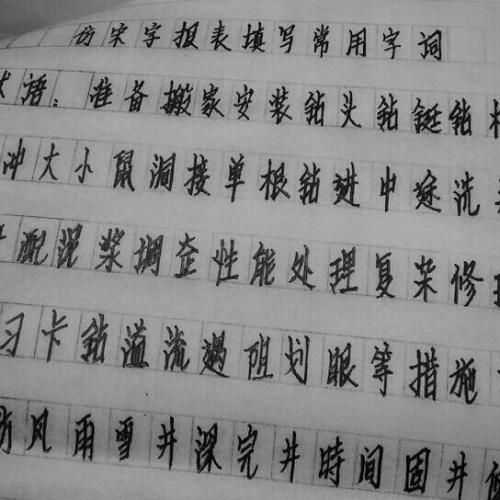 仿宋字报表填写常用字词
术语:准备搬家安装钻头钻铤钻
冲大小鼠洞接单根钻进中途洗
配泥浆调整性能处理复杂修
卡钻溢流遇阻划眼等措施
防风雨雪井深完井時间固井